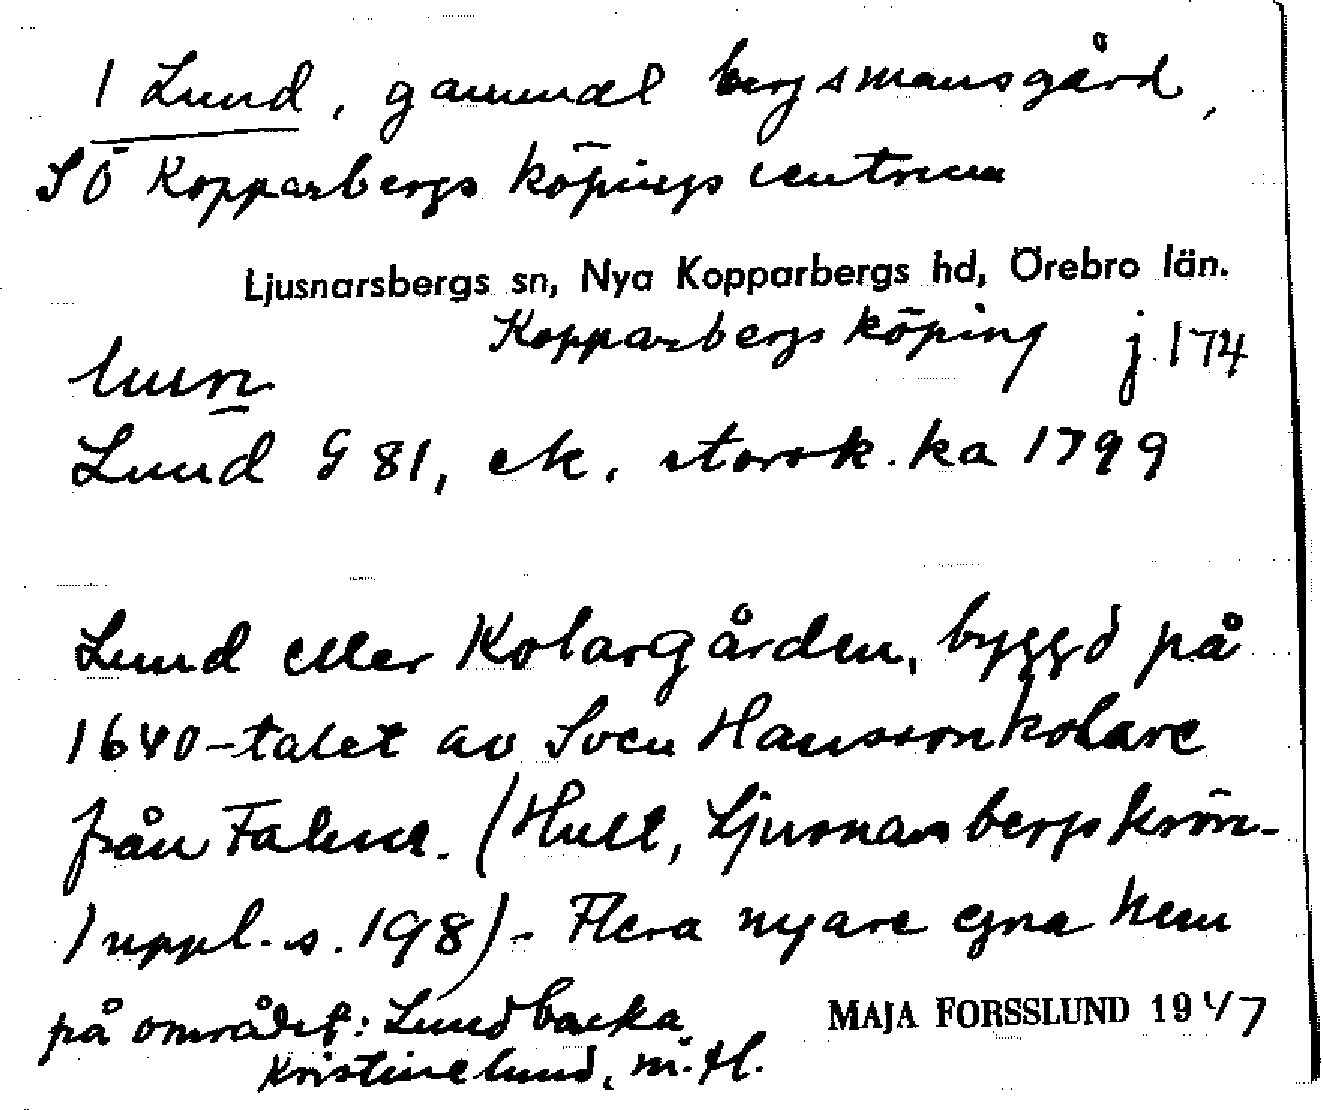 1 Lund, gammal bergsmansgård,
SÖ Kopparbergs köpings centrum
Ljusnarsbergs sn, Nya Kopparbergs hd, Örebro län.
Kopparbergs köping j. 174
lunn
Lund G 81, ek. storsk. ka 1799
Lund eller Kolargården, byggd på
1640-talet av Sven Hansson kolare
från Falun. (Hult, Ljusnarsbergs krön.
1 uppl. s. 198) - Flera nyare egna hem
på området: Lundbacka
Kristinelund, m.fl.
MAJA FORSSLUND 1947